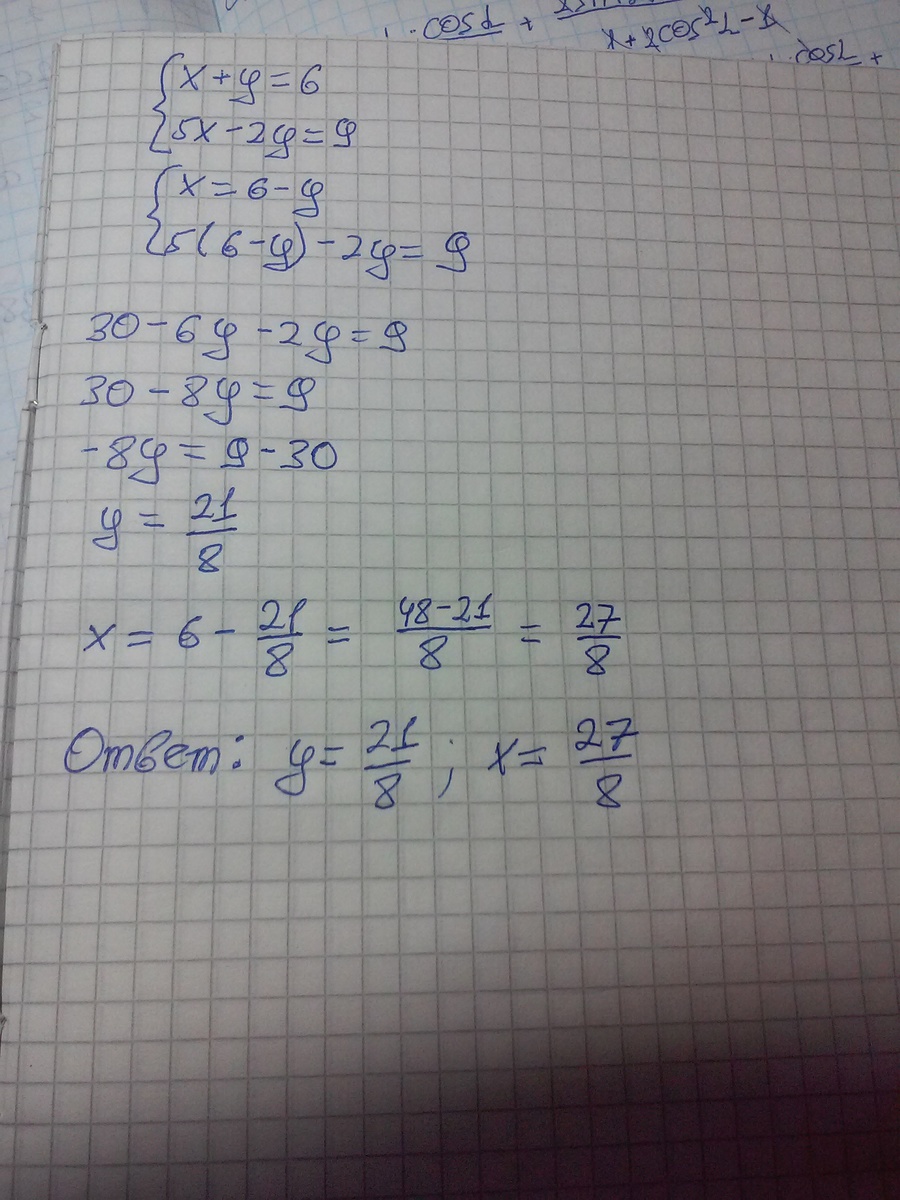 cosα +
x+2cos²2-x
cos2 +
x+y=6
5x-2y=9
x=6-y
5(6-y)-2y=9
30-6y-2y=9
30-8y=9
-8y=9-30
y=21/8
x=6-21/8=48-21/8=27/8
Ответ: y=21/8; x=27/8